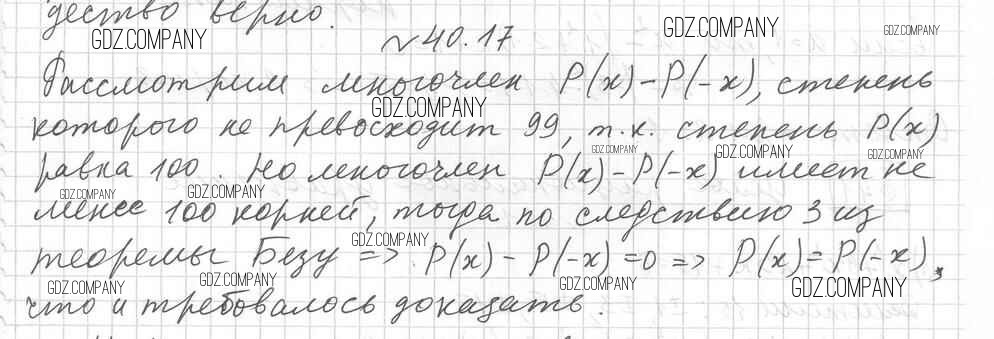 дество верно.
GDZ.COMPANY GDZ.COMPANY GDZ.COMPANY
№ 40.17
Рассмотрим многочлен P(x)-P(-x), степень
GDZ.COMPANY
которого не превосходит 99, т.к. степень P(x)
GDZ.COMPANY GDZ.COMPANY GDZ.COMPANY
равна 100. Но многочлен P(x)-P(-x) имеет не
GDZ.COMPANY GDZ.COMPANY
менее 100 корней, тогда по следствию 3 из
GDZ.COMPANY
теоремы Безу => P(x) - P(-x) =0 => P(x)=P(-x),
GDZ.COMPANY GDZ.COMPANY GDZ.COMPANY GDZ.COMPANY
что и требовалось доказать.